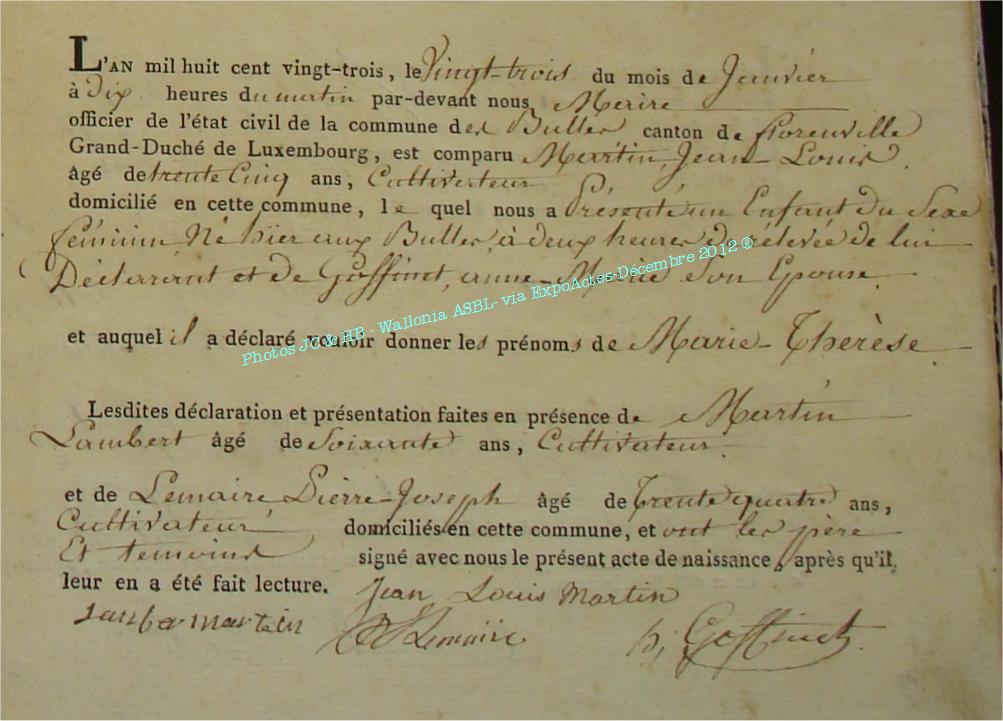 L'AN mil huit cent vingt-trois, le Vingt-trois du mois de Janvier
à Dix heures du matin par-devant nous, Merire
officier de l'état civil de la commune des Bulles canton de florenville
Grand-Duché de Luxembourg, est comparu Martin, Jean-Louis,
âgé de trente Cinq ans, Cultivateur
domicilié en cette commune, le quel nous a Présenté un Enfant du Sexe
féminin Né hier aux Bulles, à deux heures de rélevée de lui
Déclarant et de Goffinet, anne-Marie Son Epouse
et auquel il a déclaré vouloir donner les prénoms de Marie-Thérèse.
Photos JC & HB - Wallonia ASBL- via ExpoActes-Décembre 2012 ®
Lesdites déclaration et présentation faites en présence de Martin
Lambert âgé de Soixante ans, Cultivateur
et de Lemaire Pierre-Joseph âgé de Trente quatre ans,
Cultivateur domiciliés en cette commune, et ont les père
Et temoins signé avec nous le présent acte de naissance, après qu'il
leur en a été fait lecture.
Jean Louis Martin
martin Lemaire Goffinet